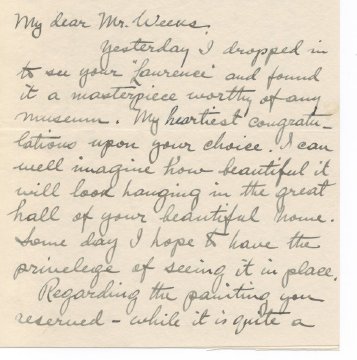 My dear Mr. Weeks,
Yesterday I dropped in
to see your "Laurence" and found
it a masterpiece worthy of any
museum. My heartiest congratu-
lations upon your choice. I can
well imagine how beautiful it
will look hanging in the great
hall of your beautiful home.
Some day I hope to have the
privelege of seeing it in place.
Regarding the painting you
reserved – while it is quite a